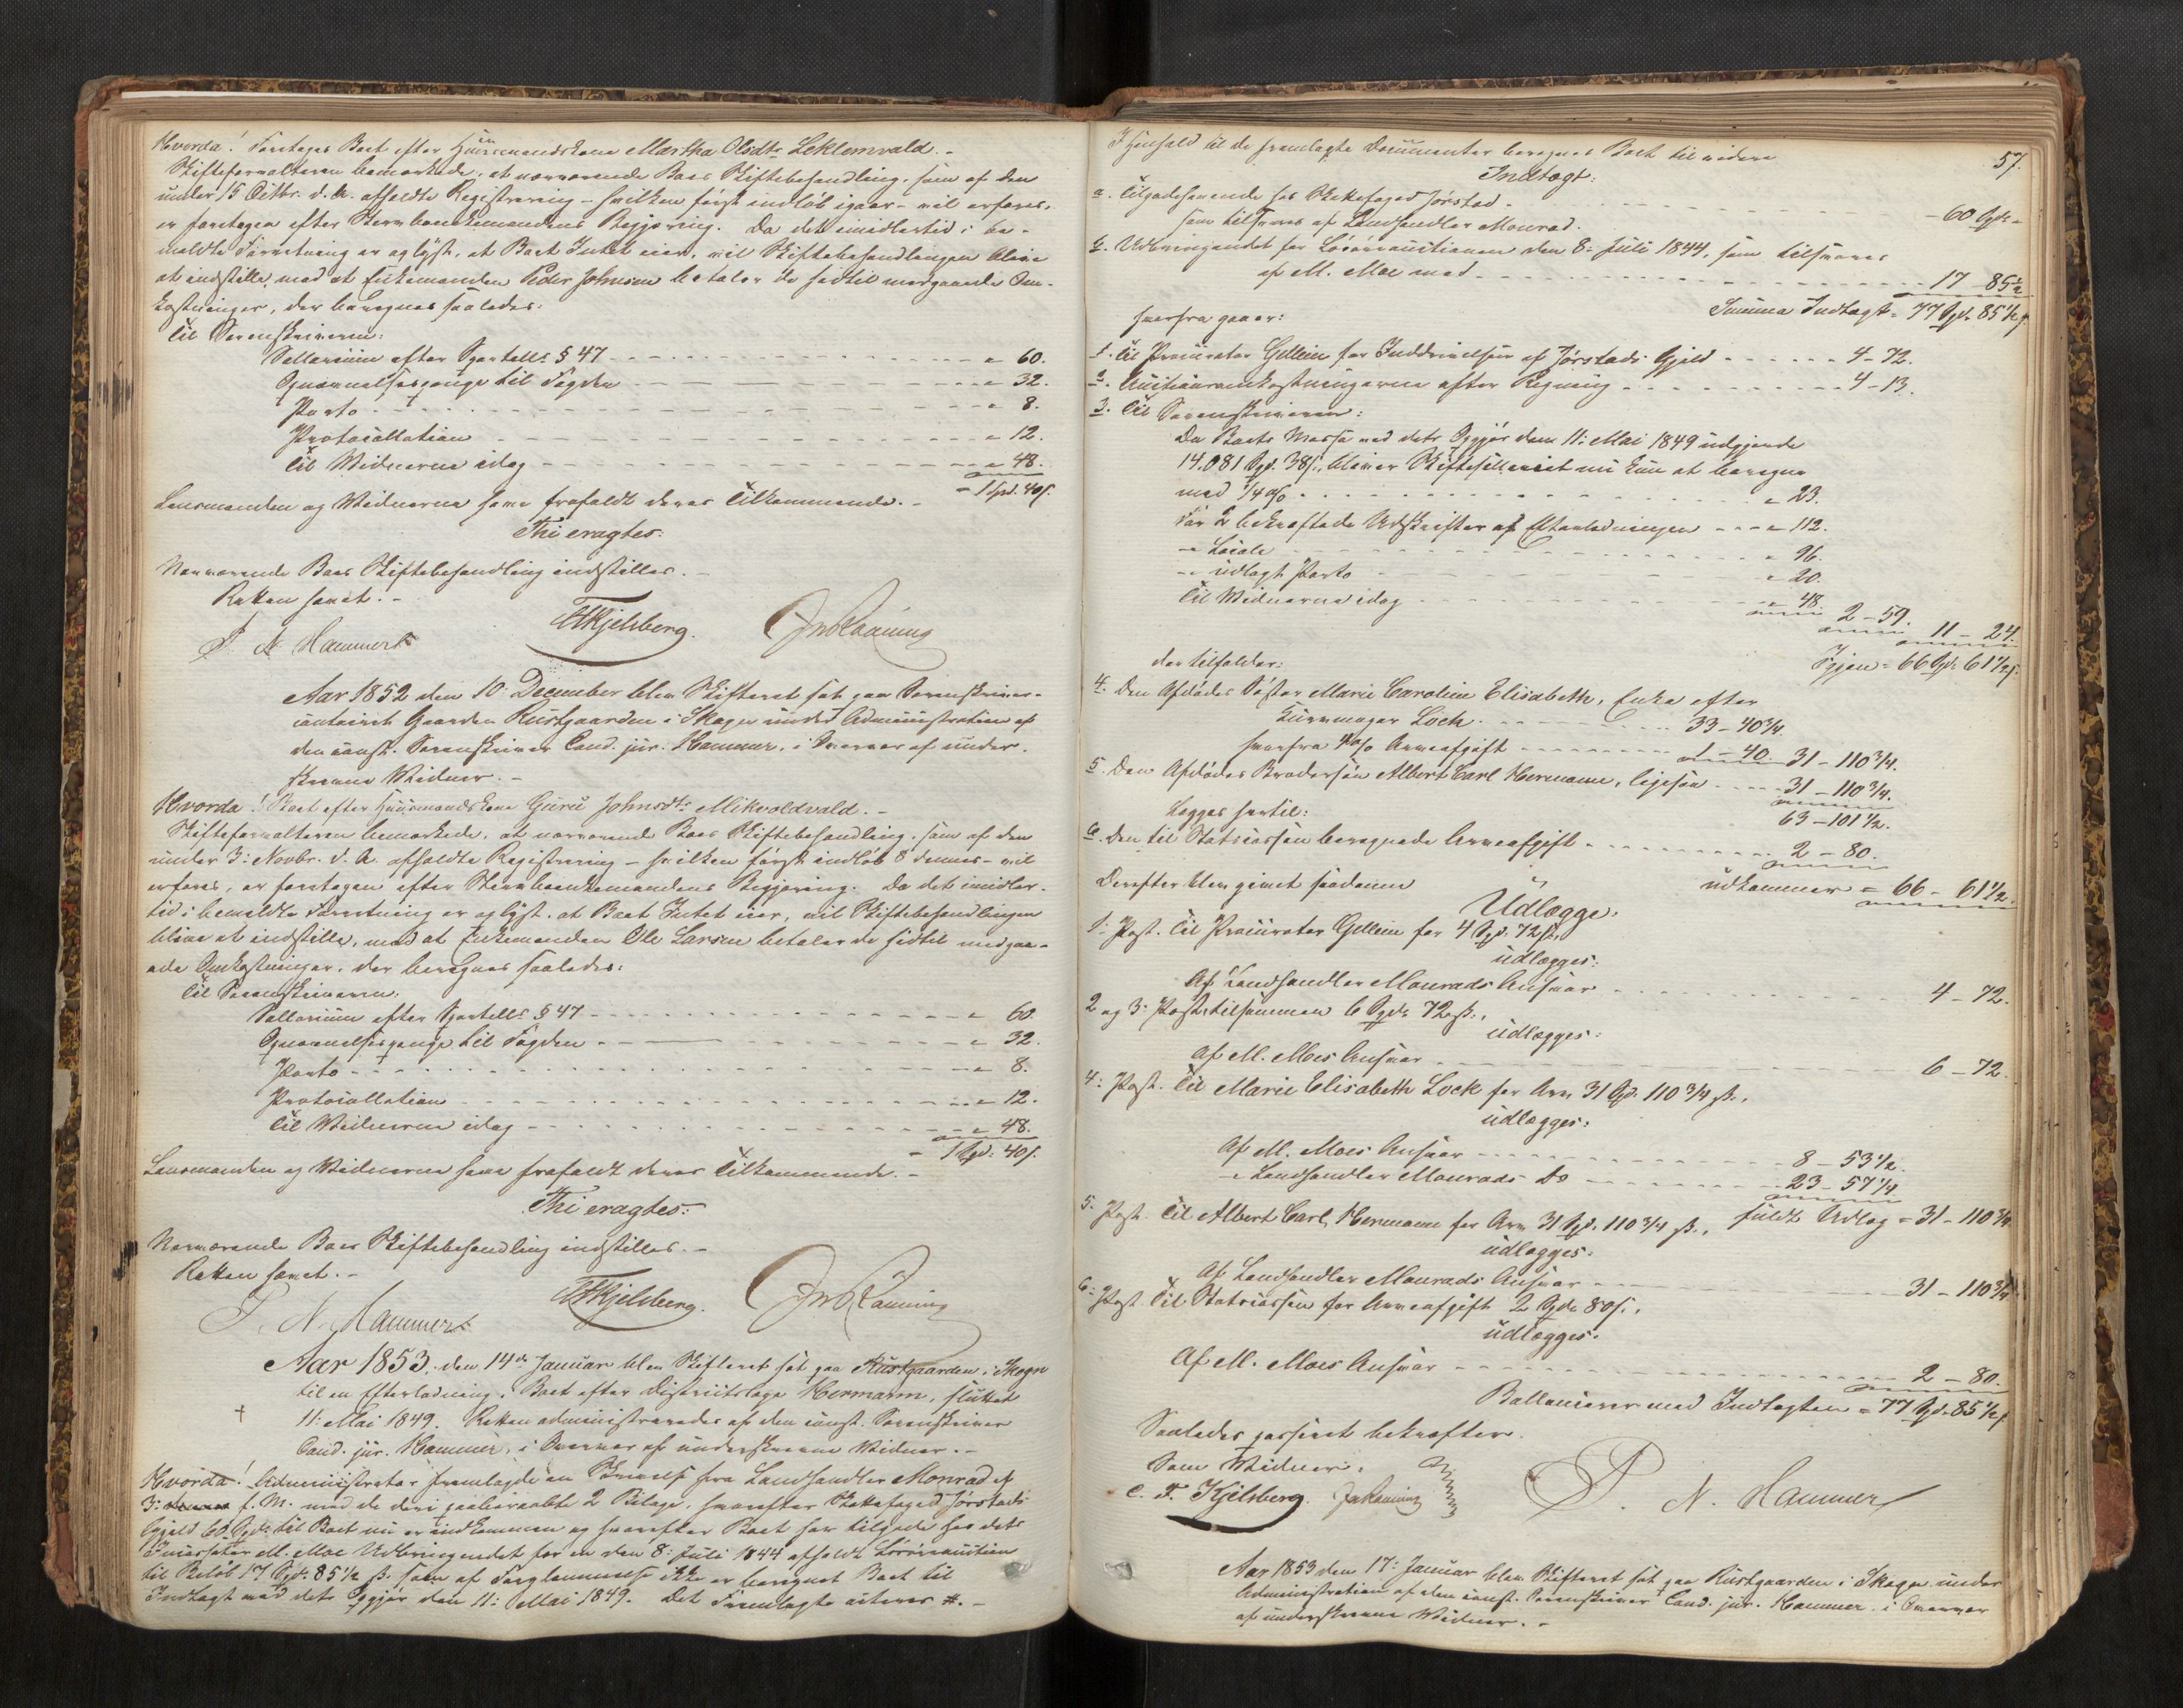 Hvorda! Foretages Boet efter Huusmandskone Martha Olsdtr Leklemvald.-
Skifteforvalteren bemærkede, at nærværende Boes Skiftebehandling, som af den
under 15 Octbr. d. A. afholdte Registrering - hvilken først indløb igaar - vil erfares,
er foretagen efter Stervboenkemandens Begjæring. Da det imidlertid i be-
meldte Forretning er oplyst, at Boet Intet eier, vil Skiftebehandlingen blive
at indstille, mod at Enkemanden Peder Johnsen betaler de hidtil medgaaende Om-
kostninger, der beregnes saaledes:
Til Sorenskriveren:
Sallarium efter Sportell. § 47 - - - " 60.
Qvævnelsespenge til Fogden - - - " 32.
Porto - - - " 8.
Protocollation - - - " 12.
Til Vidnerne idag - - - " 48.
= 1 Spd. 40 s.
Lensmanden og Vidnerne have frafaldt deres Tilkommende.-
Thi eragtes:
Nærværende Boes Skiftebehandling indstilles.-
Retten hævet.-
P. N. Hammer
CFKjelsberg.
Aar 1852 den 10 December blev Skifteret sat paa Sorenskriver-
contoiret Gaarden Rustgaarden i Skogn under Administration af
den const. Sorenskriver Cand. jur. Hammer, i Overvær af under-
skrevne Vidner.-
Hvorda! Boet efter Huusmandskone Guru Johnsdtr Mikvoldvald.-
Skifteforvalteren bemærkede, at nærværende Boes Skiftebehandling, som af den
under 3: Novbr. d. A. afholdte Registrering - hvilken først indløb 8 dennes - vil
erfares, er foretagen efter Stervboenkemandens Begjæring. Da det imidler-
tid i bemeldte Forretning er oplyst, at Boet Intet eier, vil Skiftebehandlingen
blive at indstille, mod at Enkemanden Ole Larsen betaler de hidtil medgaa-
ede Omkostninger, der beregnes saaledes:
Til Sorenskriveren:
Sallarium efter Sportell. § 47 - - - " 60.
Qvævnelsespenge til Fogden - - - " 32.
Porto - - - " 8.
Protocollation - - - " 12.
Til Vidnerne idag - - - " 48.
= 1 Spd. 40 s.
Lensmanden og Vidnerne have frafaldt deres Tilkommende.-
Thi eragtes:
Nærværende Boes Skiftebehandling indstilles.-
Retten hævet.-
P. N. Hammer
CFKjelsberg.
Aar 1853, den 14de Januar blev Skifteret sat paa Rustgaarden i Skogn
til en Efterlodning i Boet efter Districtslæge Hermann, sluttet
11: Mai 1849. Retten administreredes af den const. Sorenskriver
Cand. jur. Hammer, i Overvær af underskrevne Vidner.-
Hvorda! Administrator fremlagde en Skrivelse fra Landhandler Monrad af
3: f. M. med de deri paaberaabte 2 Bilage, hvorefter Skattefoged Jørstads
Gjæld 60 Spd. til Boet nu er indkommen og hvorefter Boet har tilgode hos dets
Incassator M. Moe Udbringendet for en den 8: Juli 1844 afholdt Løsøreauction
til Beløb 17 Spd. 85½ s. som af Forglemmelse ikke er beregnet Boet til
Indtægt ved dets Opgjør den 11: Mai 1849. Det Fremlagte acteres #.-
57.
I Henhold til de fremlagte Documenter beregnes Boet til videre
Indtægt:
a. Tilgodehavende hos Skattefoged Jørstad - - - 60 Spd. -
som tilsvares af Landhandler Monrad.
b. Udbringendet for Løsøreauctionen den 8: Juli 1844, som tilsvares
af M. Moe med - - - 17 - 85½
Summa Indtægt = 77 Spd. 85½ s.
hvorfra gaaer:
1. Til Procurator Gellein for Inddrivelsen af Jørstads Gjæld - - - 4 - 72.
2. Auctionsomkostningerne efter Regning - - - 4 - 13.
3. Til Sorenskriveren:
Da Boets Masse ved dets Opgjør den 11: Mai 1849 udgjorde
14,081 Spd. 38 s., bliver Skiftesallariet nu kun at beregne
med ¼ % - - - " 23.
For 2 bekræftede Udskrifter af Efterlodningen - - - " 112.
" Locale - - - " 96.
" udlagt Porto - - - " 20.
Til Vidnerne idag - - - " 48.
2 - 59.
11 - 24.
Igjen = 66 Spd. 61½ s.
der tilfalder:
4. Den Afdødes Søster Marie Caroline Elisabeth, Enke efter
Loch - - - 33 - 40¾.
hvorfra 4 % Arveafgift - - - 1 - 40. 31 - 110¾.
5. Den Afdødes Brodersøn Albert Carl Hermann, ligesaa - - - 31 - 110¾.
63 - 101½.
Lægges hertil:
6. Den til Statscassen beregnede Arveafgift - - - 2 - 80.
udkommer = 66 - 61½
Derefter blev gjort saadanne
Udlægge.
1: Post. Til Procurator Gellein for 4 Spd. 72 s.,
udlægges:
Af Landhandler Monrads Ansvar - - - 4 - 72.
2 og 3: Post, tilsammen 6 Spd. 72 s.,
udlægges:
Af M. Moes Ansvar - - - 6 - 72.
4: Post. Til Marie Elisabeth Lock for Arv 31 Spd. 110¾ s.,
udlægges:
Af M. Moes Ansvar - - - 8 - 53½.
" Landhandler Monrads Do - - - 23 - 57¼
fuldt Udlæg = 31 - 110¾
5. Post. Til Albert Carl Hermann for Arv 31 Spd. 110¾ s.,
udlægges:
Af Landhandler Monrads Ansvar - - - 31 - 110¾
6: Post. Til Statscassen for Arveafgift 2 Spd. 80 s.,
udlægges:
Af M. Moes Ansvar - - - 2 - 80.
Ballancerer med Indtægten = 77 Spd. 85½ s.
Saaledes passeret bekræfter.
Som Vidner:
C. F. Kjelsberg.
P. N. Hammer
Aar 1853 den 17: Januar blev Skifteret sat paa Rustgaarden i Skogn under
Administration af den const. Sorenskriver Cand. jur. Hammer i Overvær
af underskrevne Vidner.-